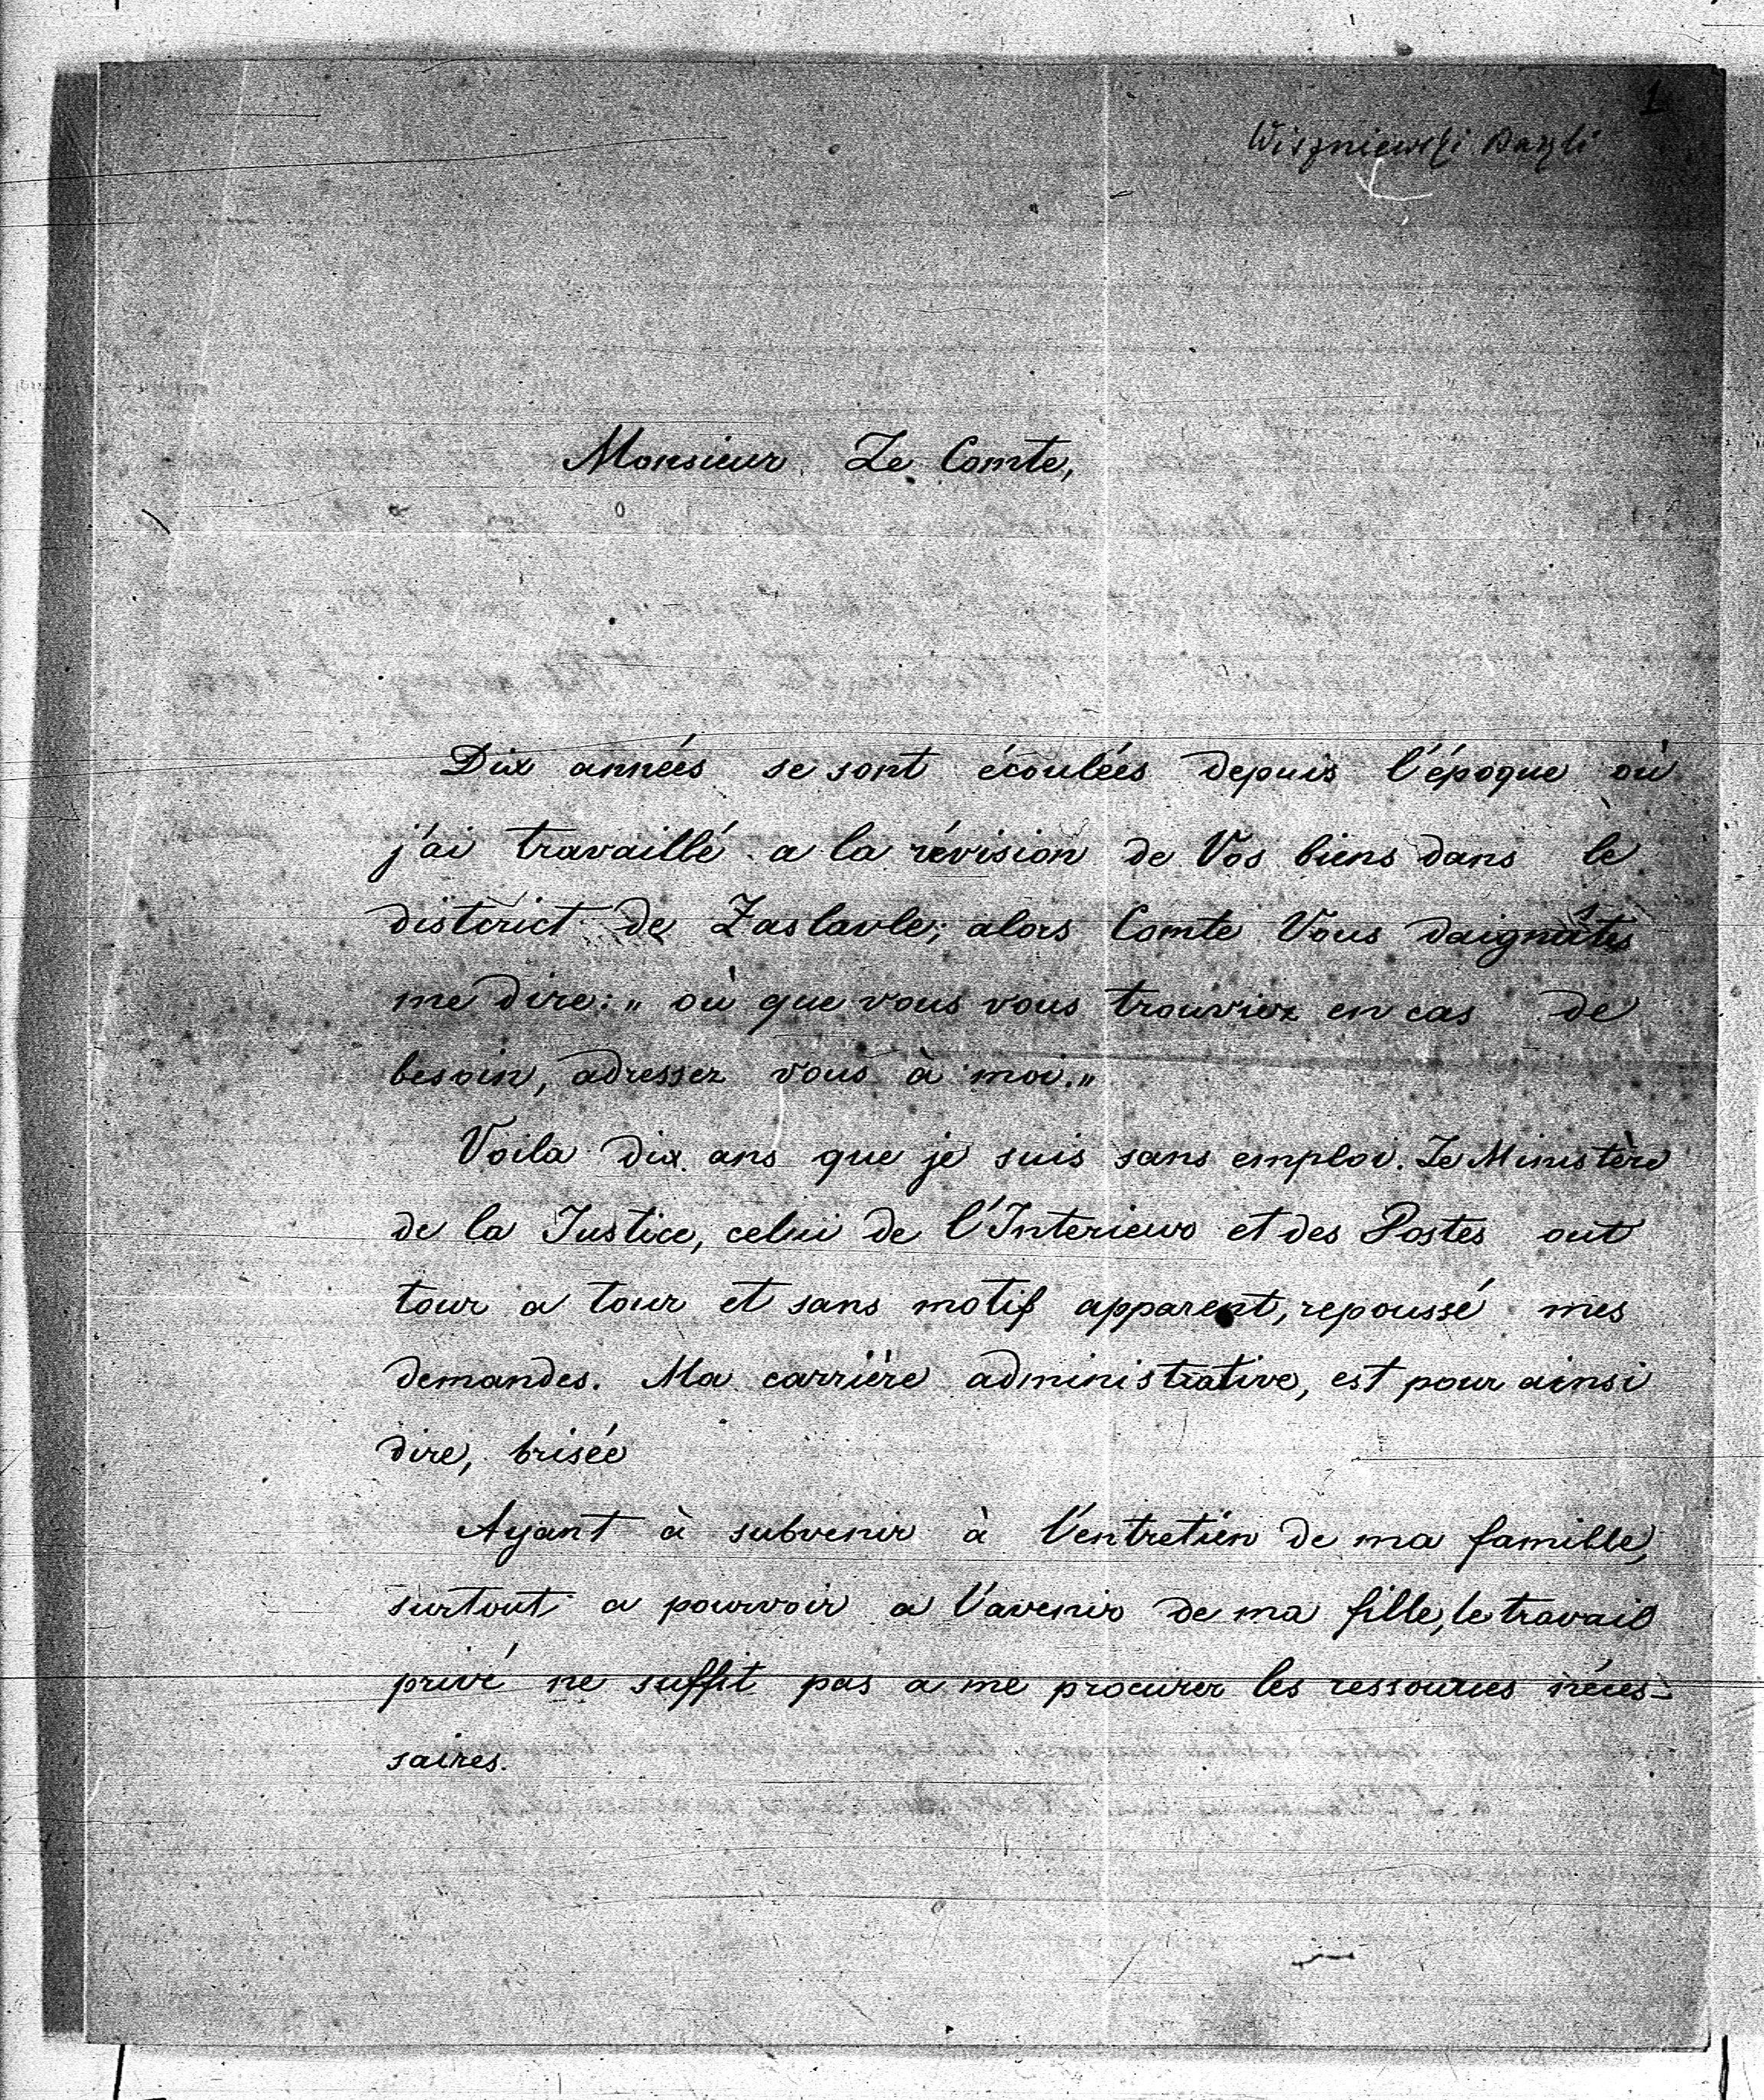 1
Wiszniewski Bazyli
Monsieur Le Comte,
Dix années se sont écoulées depuis l'époque où
j'ai travaillé a la révision de Vos biens dans le
district de Zaslavle; alors Comte Vous daignâtes
me dire: „ où que vous vous trouviez en cas de
besoin, adressez vous à moi.„
Voila dix ans que je suis sans emploi. Le Ministère
de la Justice, celui de l'Interieur et des Postes ont
tour a tour et sans motif apparent, repoussé mes
demandes. Ma carrière administrative, est pour ainsi
dire, brisée
Ayant à subvenir à l'entretien de ma famille,
surtout a pourvoir a l'avenir de ma fille, le travail
privé ne suffit pas a me procurer les ressources néces-
saires.